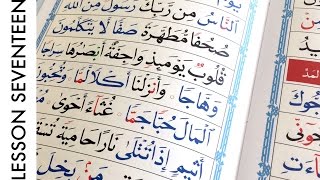 LESSON SEVENTEEN
يَوْمَ
النَّاسُ مِنْ رَّبِّكَ رَسُولٌ مِّنَ اللهِ
صُحُفًا مُّطَهَّرَةً صَفًّا لَّا يَتَكَلَّمُونَ
قُلُوبٌ يَّوْمَئِذٍ وَّاجِفَةٌ أَبْصَارُهَا سِرَاجًا
وَّهَّاجًا وَّأَنْزَلْنَا أَكْلًا لَّمًّا وَّتُحِبُّونَ
الْمَالَ حُبًّا جَمًّا غُثَاءً أَحْوٰى
أَثِيمٍ إِذَا تُتْلٰى نَارًا حَامِيَةً
مِنْ